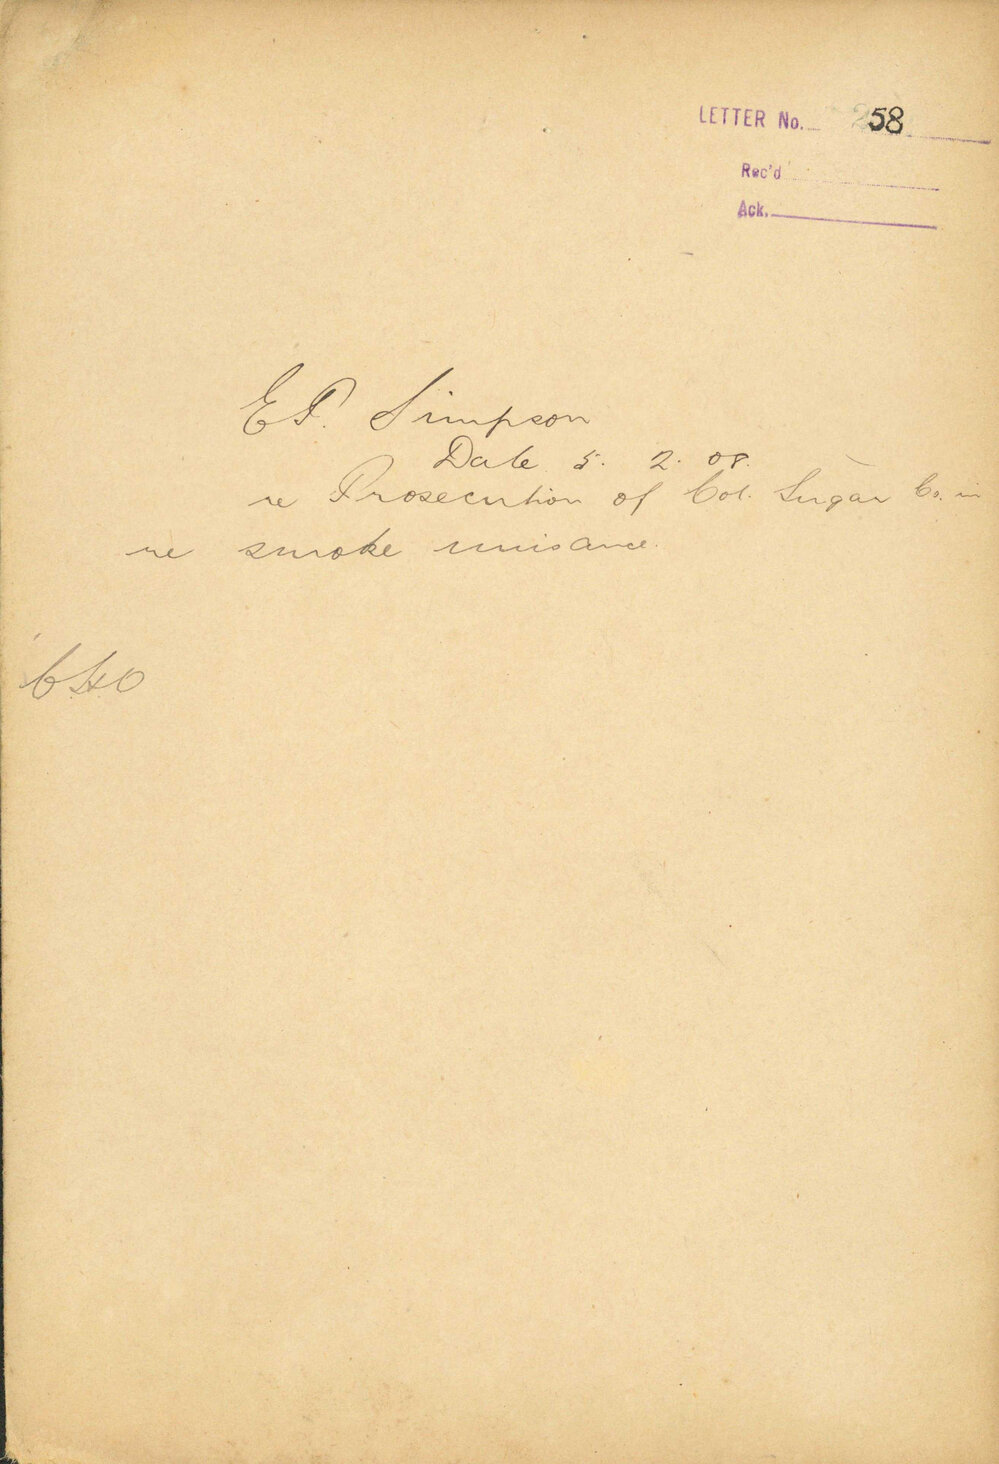 LETTER No. 258
Rec'd
Ack.
E.P. Simpson
Date 5. 2. 08.
re Prosecution of Col. Sugar Co. in
re smoke nuisance.
C.H.O